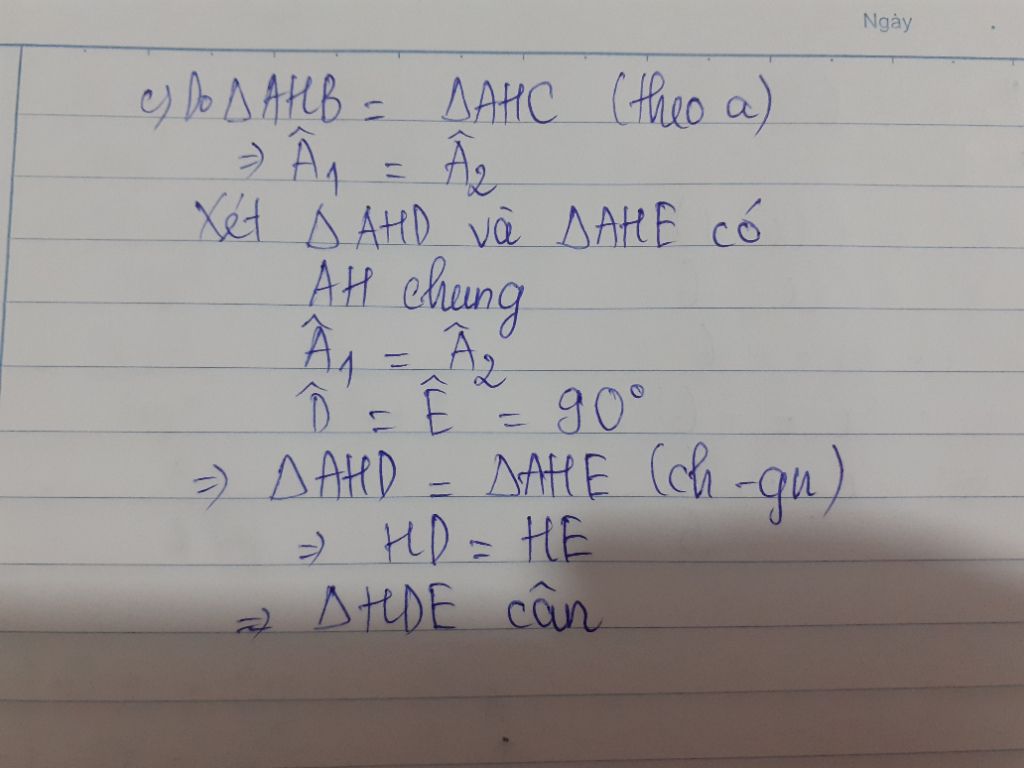 Ngày
c) Do ΔAHB = ΔAHC (theo a)
⇒ Â₁ = Â₂
Xét ΔAHD và ΔAHE có
AH chung
Â₁ = Â₂
D̂ = Ê = 90°
⇒ ΔAHD = ΔAHE (ch - gn)
⇒ HD = HE
⇒ ΔHDE cân